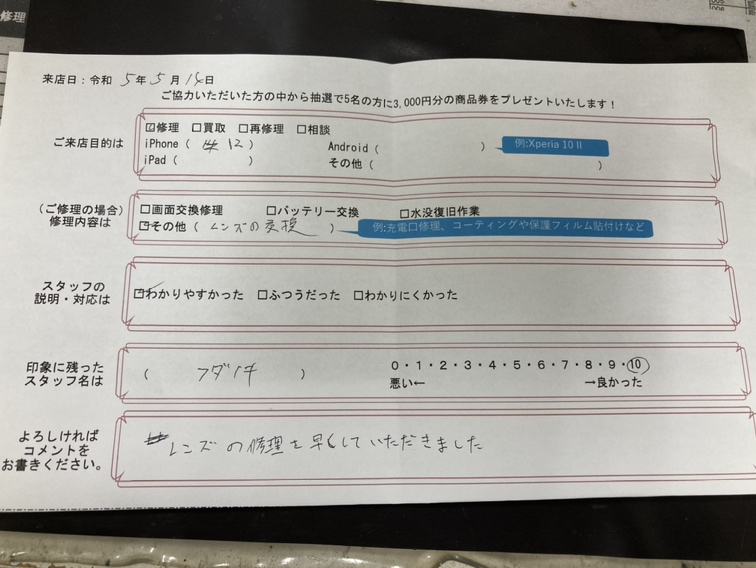 修理
来店日：令和 5年5月15日
ご協力いただいた方の中から抽選で5名の方に3,000円分の商品券をプレゼントいたします！
ご来店目的は
☑修理 □買取 □再修理 □相談
iPhone（ 12 ） Android（ ） 例:Xperia 10 II
iPad（ ） その他（ ）
（ご修理の場合）
修理内容は
□画面交換修理 □バッテリー交換 □水没復旧作業
☑その他（ レンズの交換 ） 例:充電口修理、コーティングや保護フィルム貼付けなど
スタッフの
説明・対応は
☑わかりやすかった □ふつうだった □わかりにくかった
印象に残った
スタッフ名は
（ フダノキ ）
0・1・2・3・4・5・6・7・8・9・10
悪い← →良かった
よろしければ
コメントを
お書きください。
レンズの修理を早くしていただきました